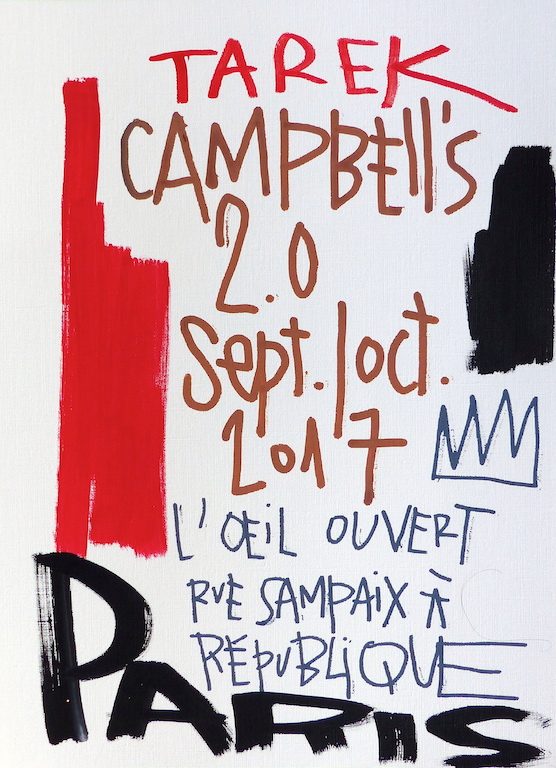 TAREK
CAMPBEll'S
2.0
Sept./oct.
2017
L'OEiL OUVERT
RUE SAMPAIX À
RÉPUBLiQUE
PARIS